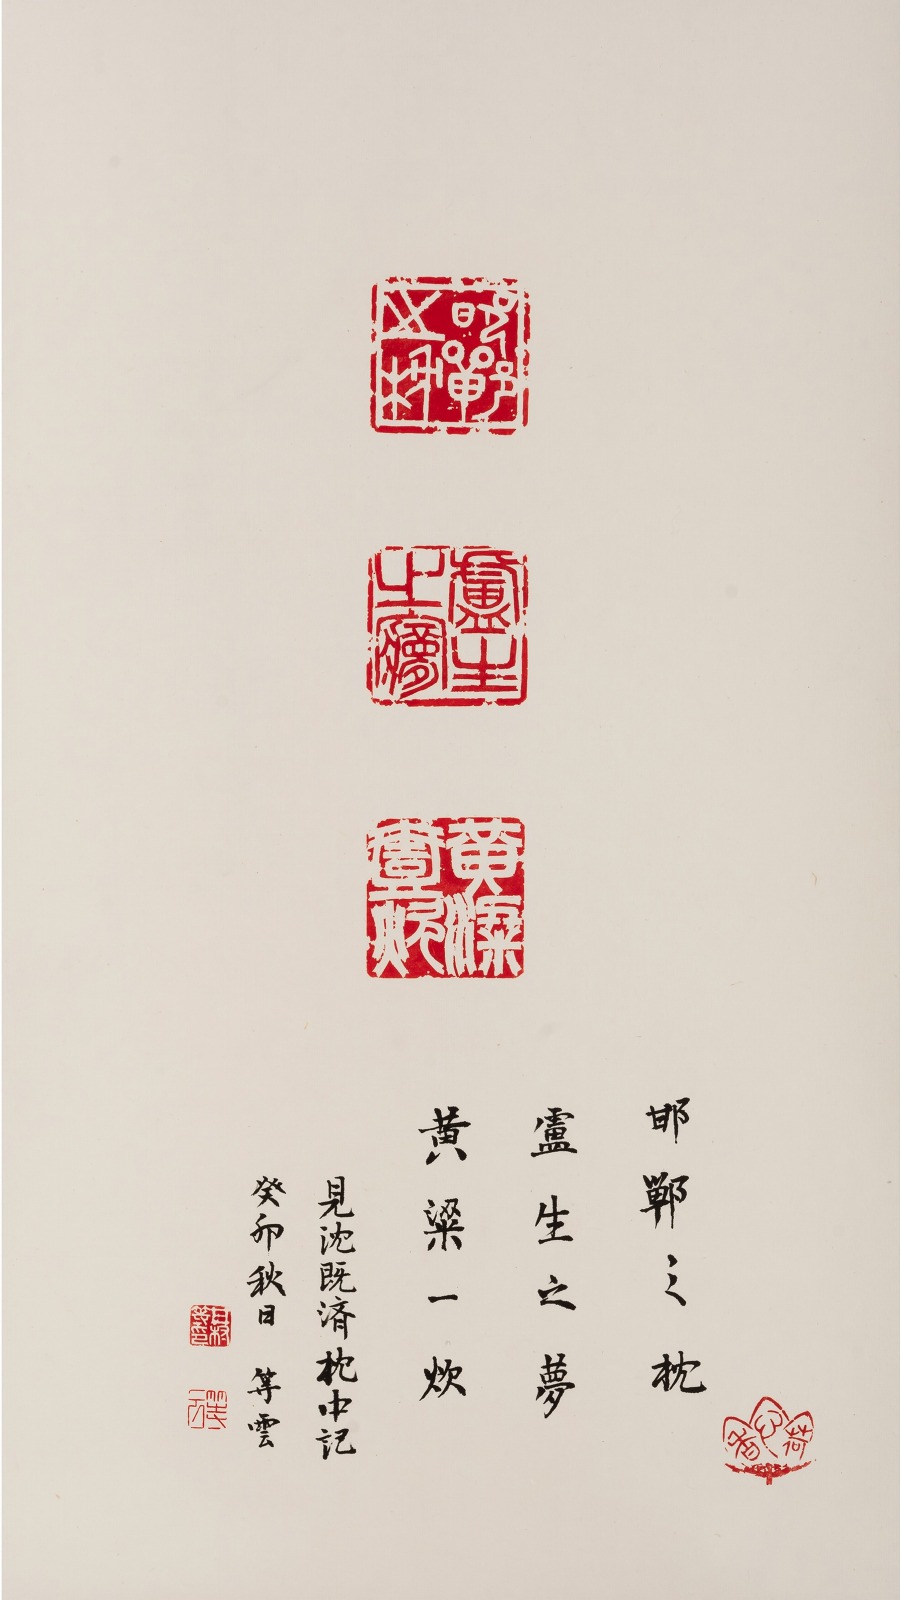 邯鄲之枕
盧生之夢
黃粱壹炊
邯鄲之枕
盧生之夢
黄粱一炊
見沈既済枕中記
癸卯秋日 雲
荷心香